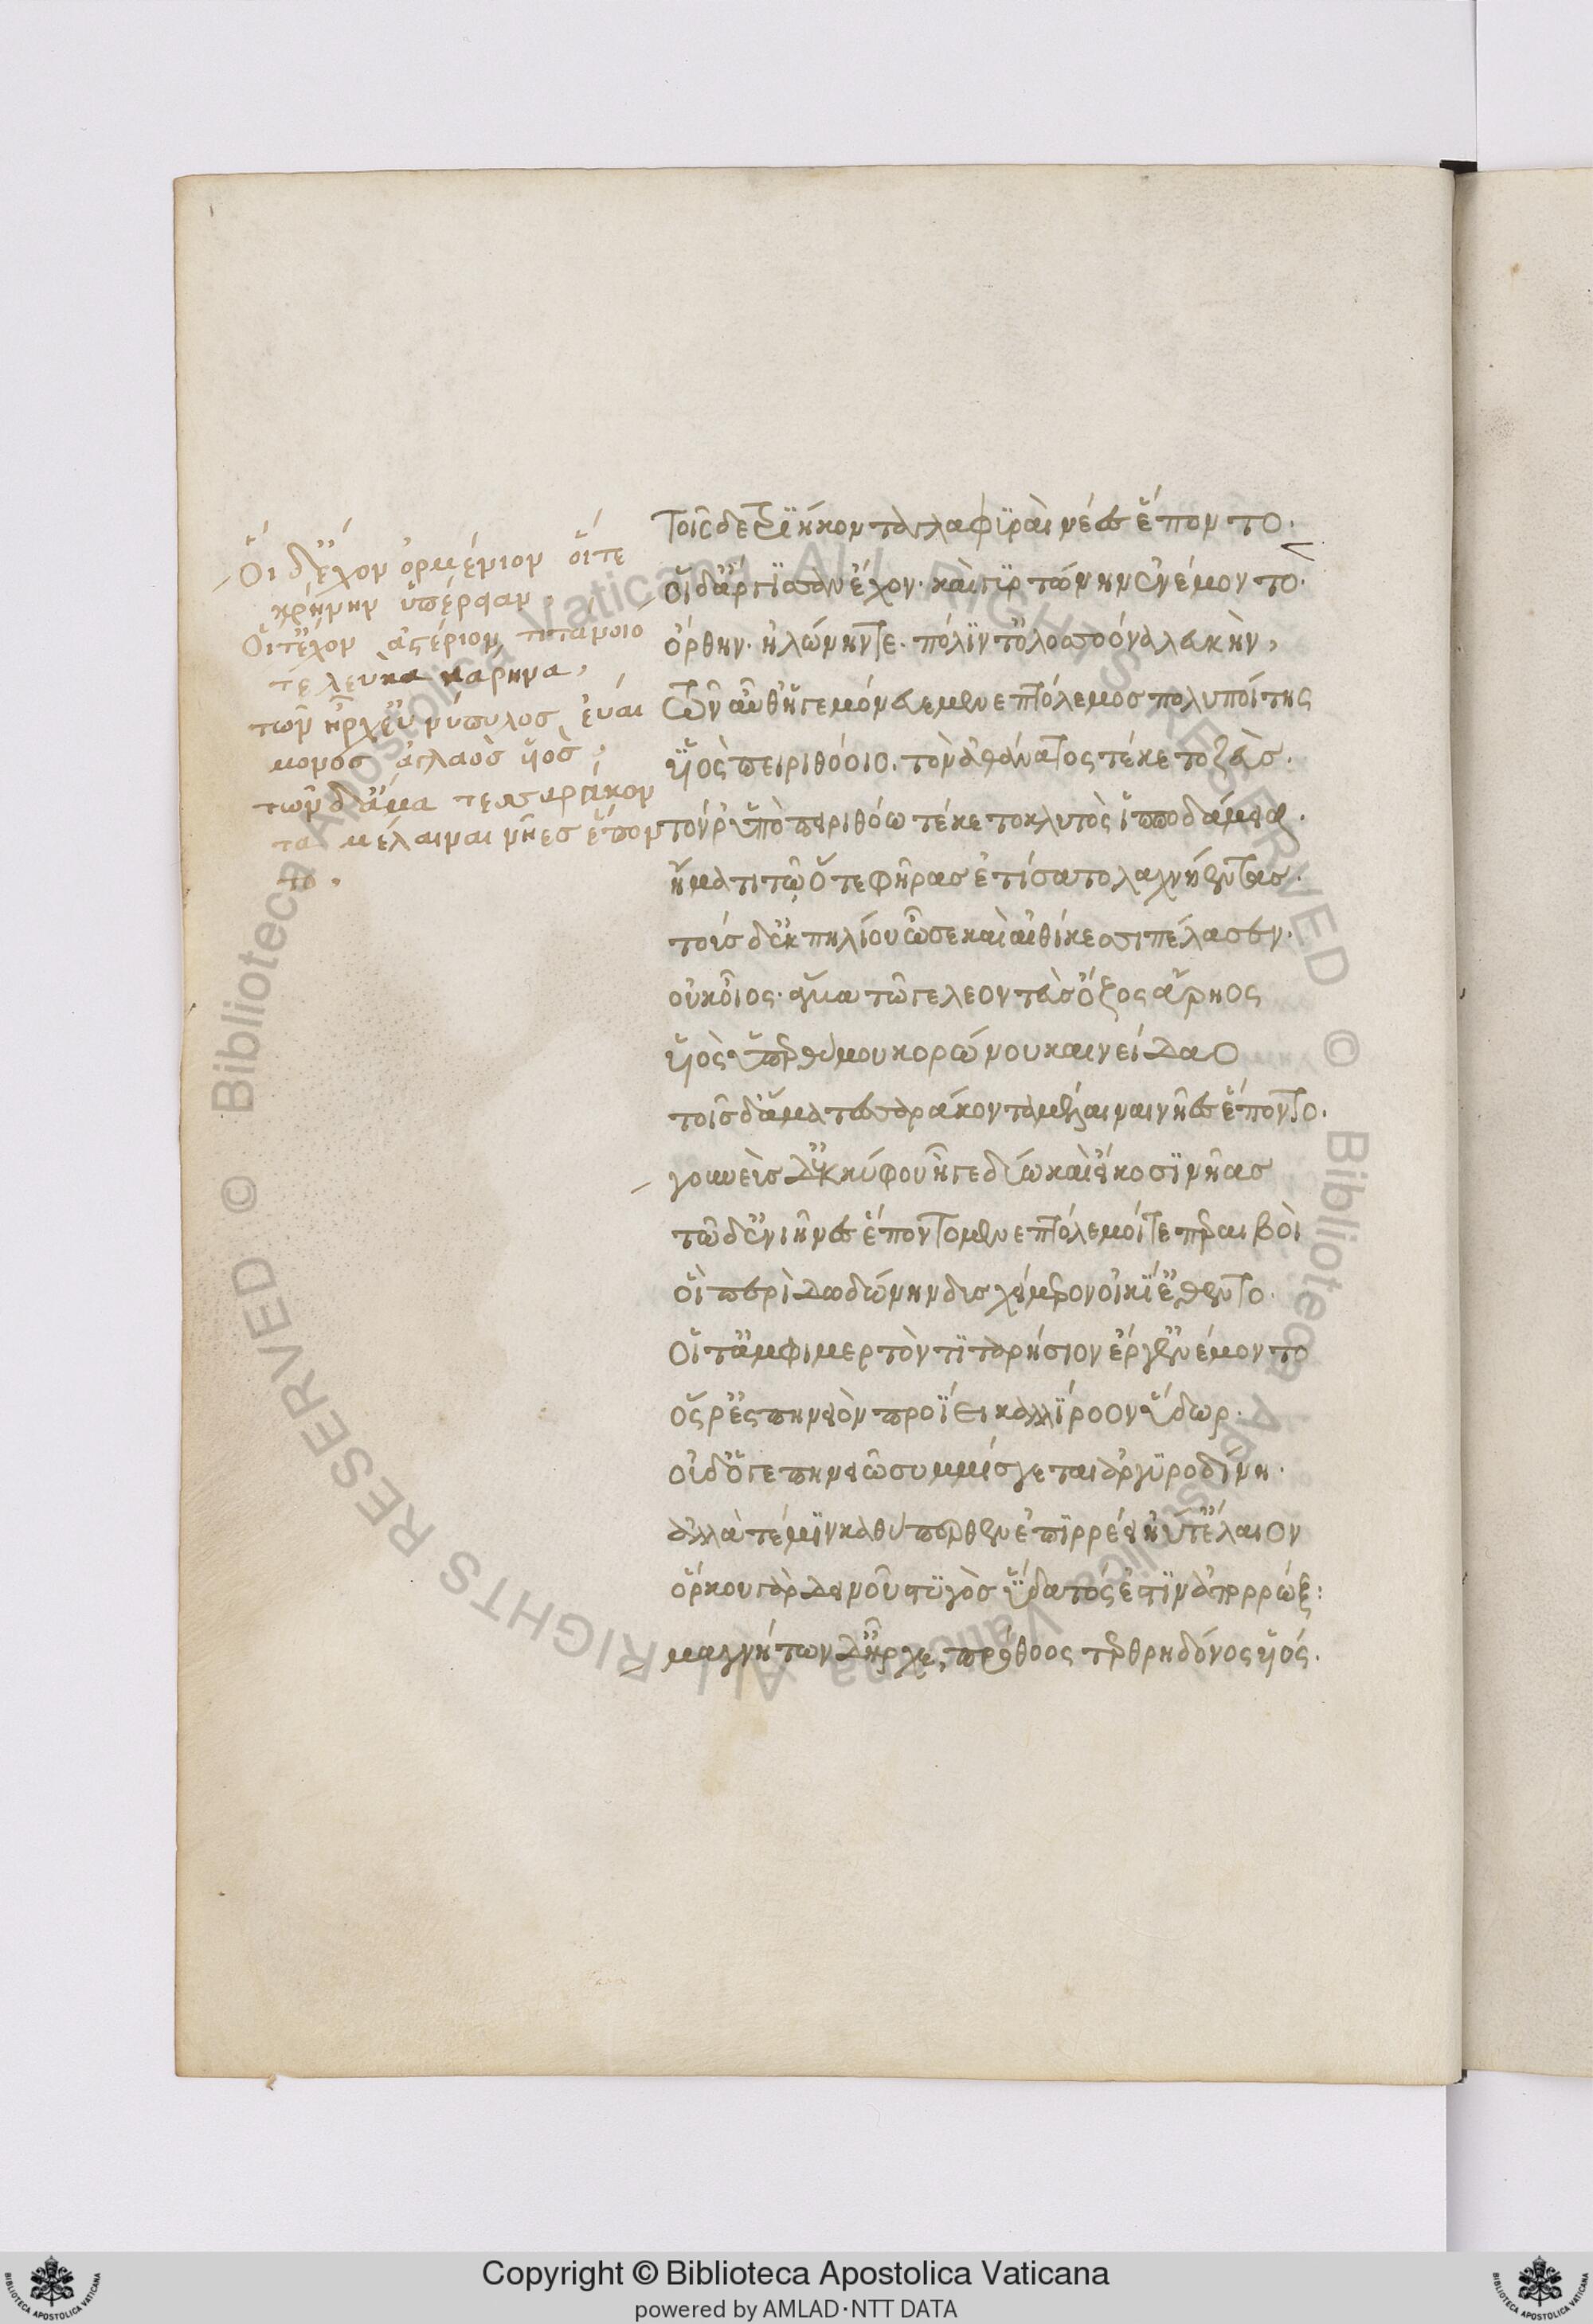 Οἵ δ' ἔχον ὀρμένιον οἵ τε
κρήνην ὑπέρειαν,
Οἵ τ' ἔχον ἀστέριον τιτάνοιο
τε λευκα καρηνα,
τῶν ἦρχ' εὐρύπυλος, ἐυαί
μονος ἀγλαὸς υἱὸς,
τῶν δ' ἅμα τεσσαράκον
τα μέλαιναι νῆες ἕπον
το.
Τοῖς δὲ τριήκοντα γλαφυραὶ νέες ἕποντο.
οἳ δ' ἄργισσαν ἔχον. καὶ γυρτώνην ἐνέμοντο.
ὄρθην. ἠλώνην τε. πόλιν τ' ὀλοοσσόνα λευκὴν,
τῶν αὖθ' ἡγεμόνευε μενεπτόλεμος πολυποίτης
υἱὸς πειριθόοιο. τὸν ἀθάνατος τέκετο ζεὺς.
τόν ῥ' ὑπὸ πειριθόω τέκετο κλυτὸς ἱπποδάμεια.
ἤματι τῷ ὅτε φῆρας ἐτίσατο λαχνήεντας.
τοὺς δ' ἐκ πηλίου ὦσε καὶ αἰθίκεσσι πέλασσεν.
οὐκ οἶος. ἅμα τῶ γε λεοντεὺς ὄζος ἄρηος
υἱὸς ὑπερθύμου κορώνου καινείδαο
τοῖς δ' ἅμα τεσσαράκοντα μέλαιναι νῆες ἕποντο.
γουνεὺς δ' ἐκ κύφου ἦγε δύω καὶ εἴκοσι νῆας
τῶ δ' ἐνιῆνες ἕποντο μενεπτόλεμοί τε περαιβοὶ
οἳ περὶ δωδώνην δυσχείμερον οἰκί' ἔθεντο.
οἵ τ' ἀμφ' ιμερτὸν τιταρήσιον ἔργ' ἐνέμοντο
ὅς ῥ' ἐς πηνειὸν προΐει καλλίροον ὕδωρ.
οὐδ' ὅγε πηνειῶ συμμίσγεται ἀργυροδίνη.
ἀλλὰ τέ μιν καθύπερθεν ἐπιρρέει ἠΰτ' ἔλαιον
ὅρκου γὰρ δεινοῦ στυγὸς ὕδατός ἐστιν ἀπορρώξ:
μαγνήτων δ' ἦρχε, πρόθοος τενθρηδόνος υἱός.
Copyright © Biblioteca Apostolica Vaticana
powered by AMLAD·NTT DATA